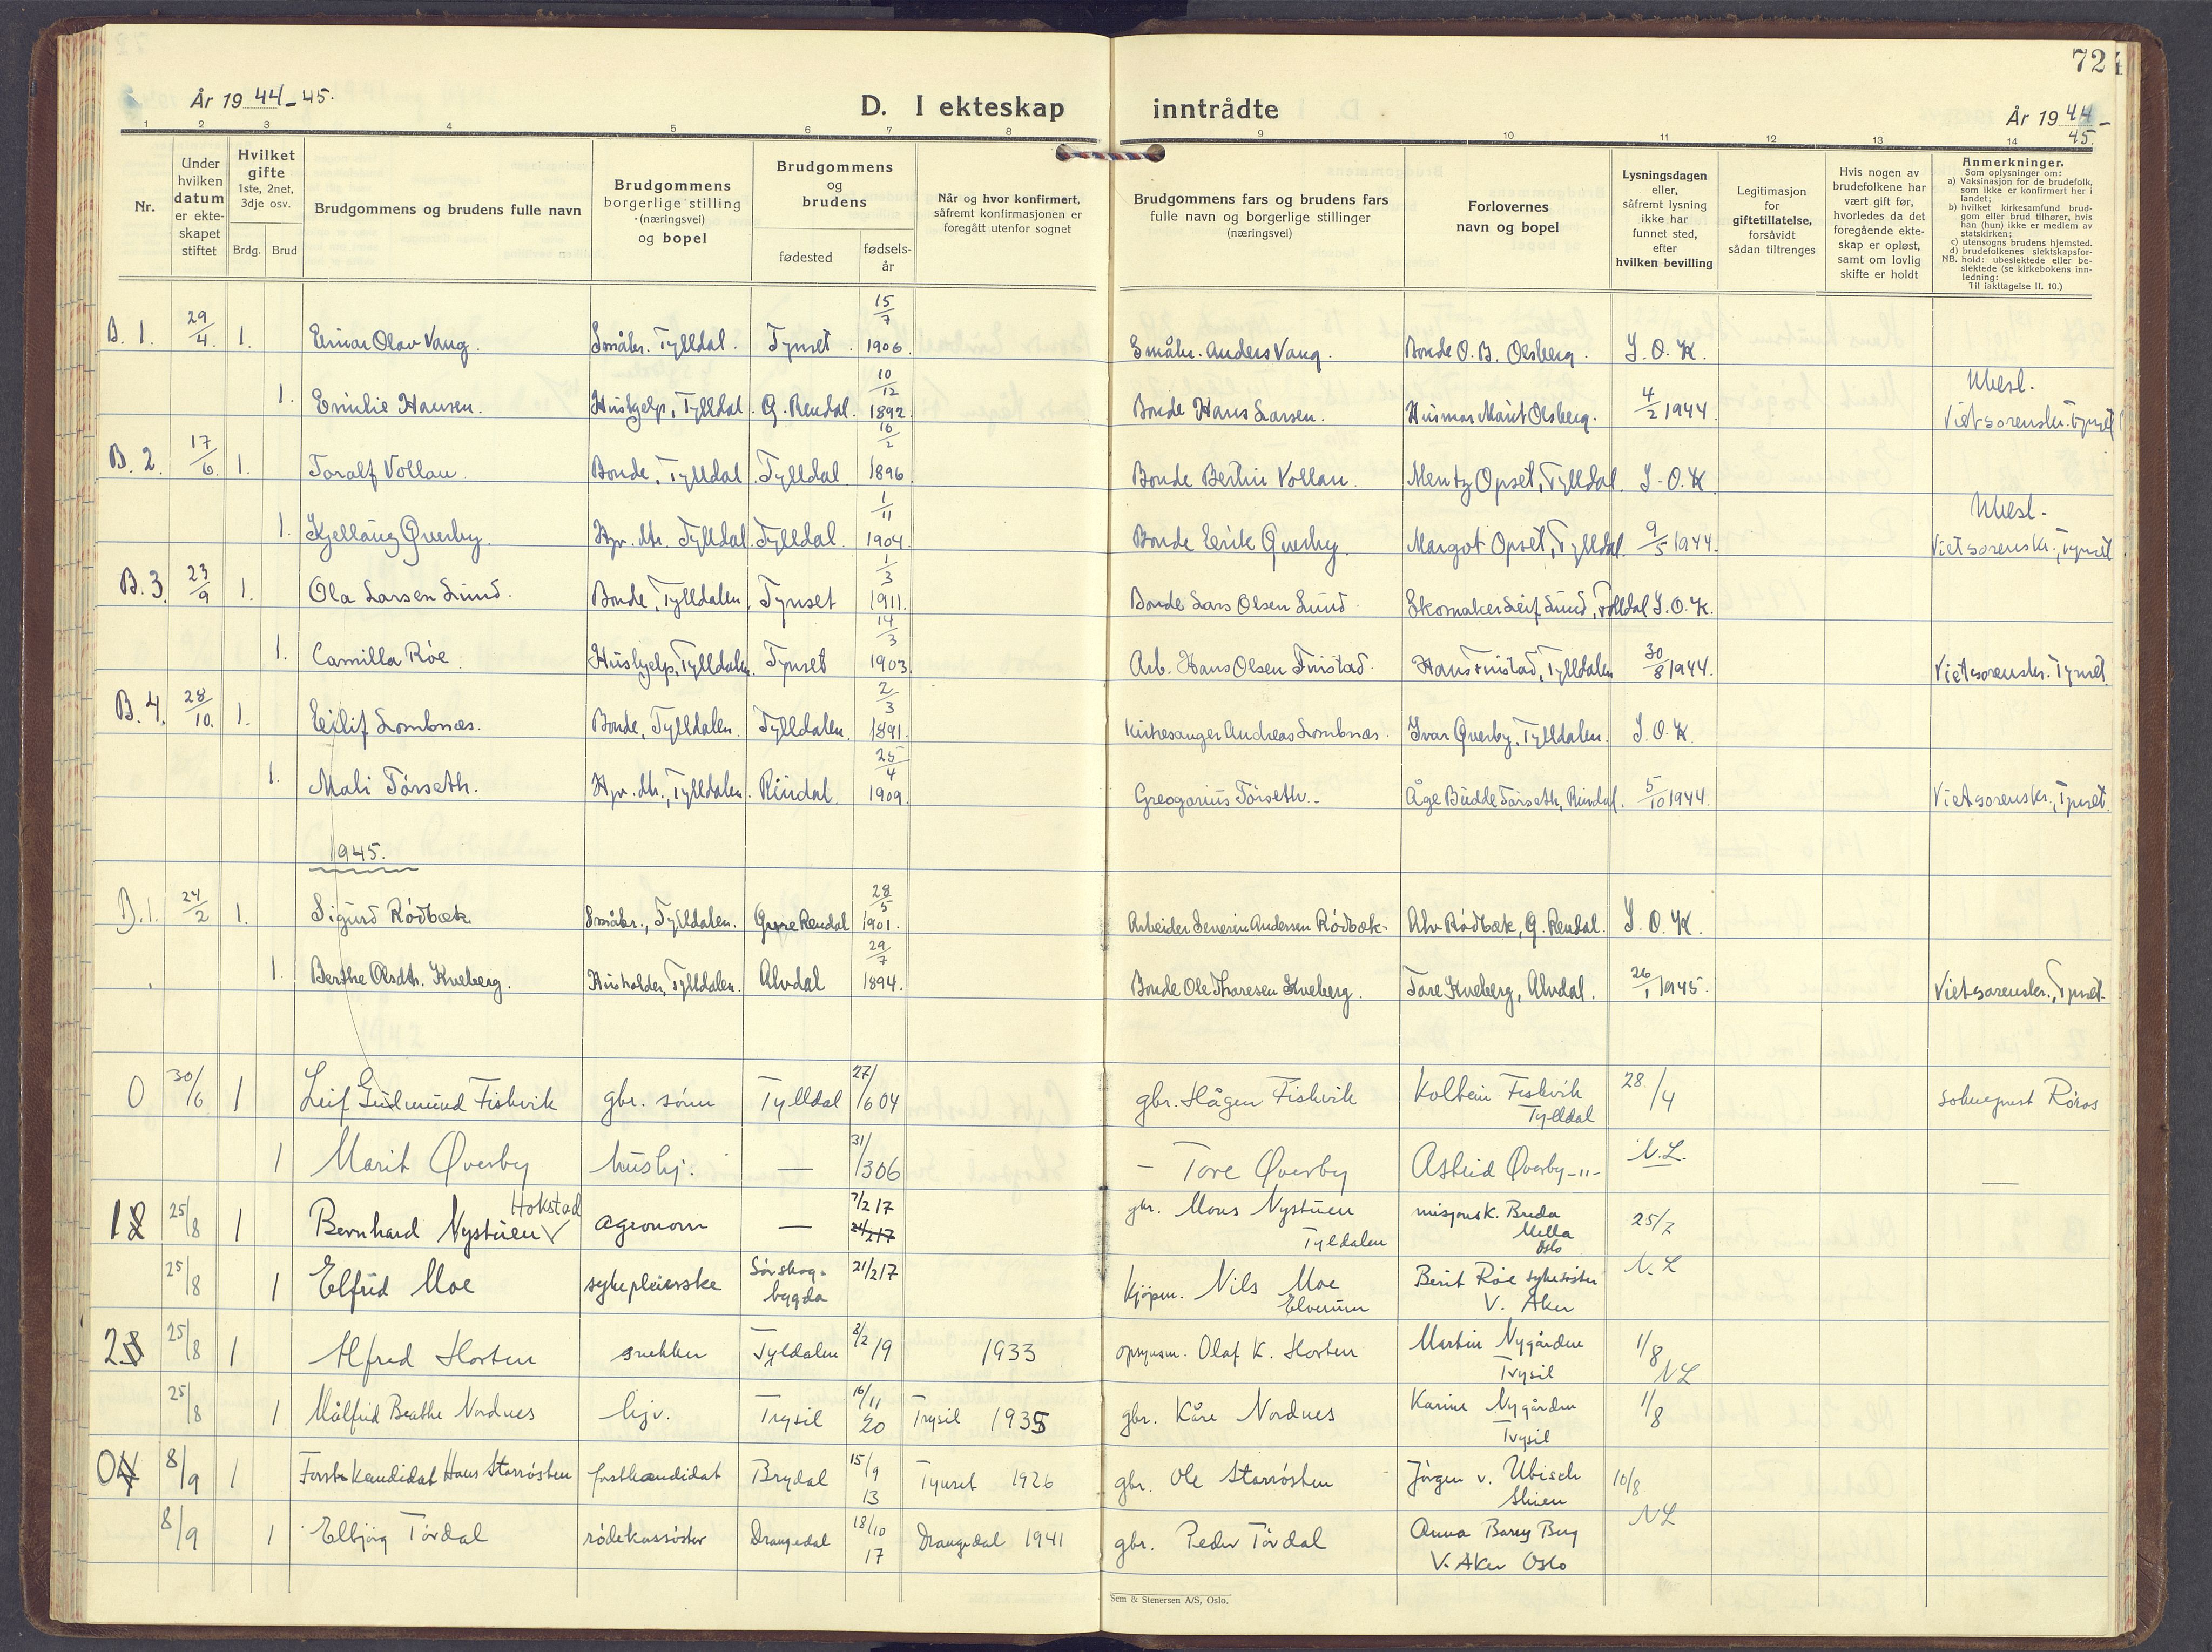 72
År 19 44-45.
D. I ekteskap inntrådte
År 19 44-
45.
1 2 3 4 5 6 7 8 9 10 11 12 13 14
Nr.
Under
hvilken
datum
er ekte-
skapet
stiftet
Hvilket
gifte
1ste, 2net,
3dje osv.
Brdg. Brud
Brudgommens og brudens fulle navn
Brudgommens
borgerlige stilling
(næringsvei)
og bopel
Brudgommens
og
brudens
fødested
fødsels-
år
Når og hvor konfirmert,
såfremt konfirmasjonen er
foregått utenfor sognet
Brudgommens fars og brudens fars
fulle navn og borgerlige stillinger
(næringsvei)
Forlovernes
navn og bopel
Lysningsdagen
eller,
såfremt lysning
ikke har
funnet sted,
efter
hvilken bevilling
Legitimasjon
for
giftetillatelse,
forsåvidt
sådan tiltrenges
Hvis nogen av
brudefolkene har
vært gift før,
hvorledes da det
foregående ekte-
skap er opløst,
samt om lovlig
skifte er holdt
Anmerkninger.
Som oplysninger om:
a) Vaksinasjon for de brudefolk,
som ikke er konfirmert her i
landet;
b) hvilket kirkesamfund brud-
gom eller brud tilhører, hvis
han (hun) ikke er medlem av
statskirken;
c) utensogns brudens hjemsted.
d) brudefolkenes slektskapsfor-
NB. hold: ubeslektede eller be-
slektede (se kirkebokens inn-
ledning:
Til iakttagelse II. 10.)
B. 1. 29/4. 1. Einar Olav Vang. Småbr. Tylldal. Tynset 15/7 1906 Småbr. Anders Vang. Bonde O. B. Olsberg. S. O. K.
1. Emilie Hansen. Hushjelp, Tylldal. G. Rendal. 10/12 1892 Bonde Hans Larsen. Husmor Marit Olsberg. 4/2 1944 Ubesl. Viet sorenskr. Tynset
B. 2. 17/6. 1. Toralf Vollan. Bonde, Tylldal. Tylldal. 16/2 1896 Bonde Bertin Vollan. Mentz Opset, Tylldal. S. O. K
1. Kjellaug Øverby. Hjv. dtr. Tylldal. Tylldal. 1/11 1904. Bonde Eirik Øverby. Margot Opset, Tylldal. 9/5 1944. Ubesl. Viet sorenskr., Tynset
B. 3. 23/9 1. Ola Larsen Lund. Bonde, Tylldalen. Tynset 1/3 1911. Bonde Lars Olsen Lund. Skomaker Leif Lund, Tylldal S. O. K.
1. Camilla Røe. Hushjelp, Tylldalen. Tynset 14/3 1903. Arb. Hans Olsen Finstad. Hans Finstad, Tylldalen 30/8 1944. Viet sorenskr. Tynset.
B. 4. 28/10. 1. Eilif Lombnæs. Bonde, Tylldalen. Tylldalen. 2/3 1891. Kirkesanger Andreas Lombnæs. Ivar Øverby, Tylldalen. S. O. K.
1. Mali Tørseth. Hjv. dtr., Tylldalen. Rindal. 25/4 1909. Greogorius Tørseth. Åge Budde Tørseth, Rindal. 5/10 1944. Viet sorenskr., Tynset.
1945.
B. 1. 24/2 1. Sigurd Rødbæk Småbr., Tylldalen. Øvre Rendal 28/5 1901. Arbeider Severin Andersen Rødbæk. Alv Rødbæk, G. Rendal. S. O. K.
1. Berthe Olsdtr. Kveberg. Husholder, Tylldalen. Alvdal 29/7 1894. Bonde Ole Thoresen Kveberg. Tore Kveberg, Alvdal. 26/1 1945. Viet sorenskr., Tynset.
0 30/6 1 Leif Gudmund Fiskvik gbr. sønn Tylldal 27/6 04 gbr. Hågen Fiskvik Kolbein Fiskvik Tylldal 28/4 sokneprest Røros
1 Marit Øverby hushj. — 31/3 06 — Tore Øverby Astrid Øverby -"- N.L. —
1 25/8 1 Bernhard Nystuen Hokstad agronom — 7/2 17 24/2 17 gbr. Mons Nystuen Tyldalen misjonsk. Breda Mella Oslo 25/7
25/8 1 Elfrid Moe sykepleierske Sørskog-
bygda 21/2 17 kjøpm. Nils Moe Elverum Berit Røe sykesøster V. Aker N. L
2 25/8 1 Alfred Horten snekker Tyldalen 8/2 19 1933 opsynsm. Olaf K. Horten Martin Nygården Trysil 1/8 NL
25/8 1 Målfrid Beathe Nordnes hjv. Trysil 16/11 20 Trysil 1935 gbr. Kåre Nordnes Karine Nygården Trysil 1/8
0 8/9 1 Forstkandidat Hans Storrøsten forstkandidat Brydal 15/9 13 Tynset 1926 gbr. Ole Storrøsten Jörgen v. Ubisch Skien 10/8
8/9 1 Elbjørg Tørdal rødekorssøster Drangedal 18/10 17 Drangedal 1941 gbr. Peder Tørdal Anna Berg V. Aker Oslo NL
Sem & Stenersen A/S, Oslo.